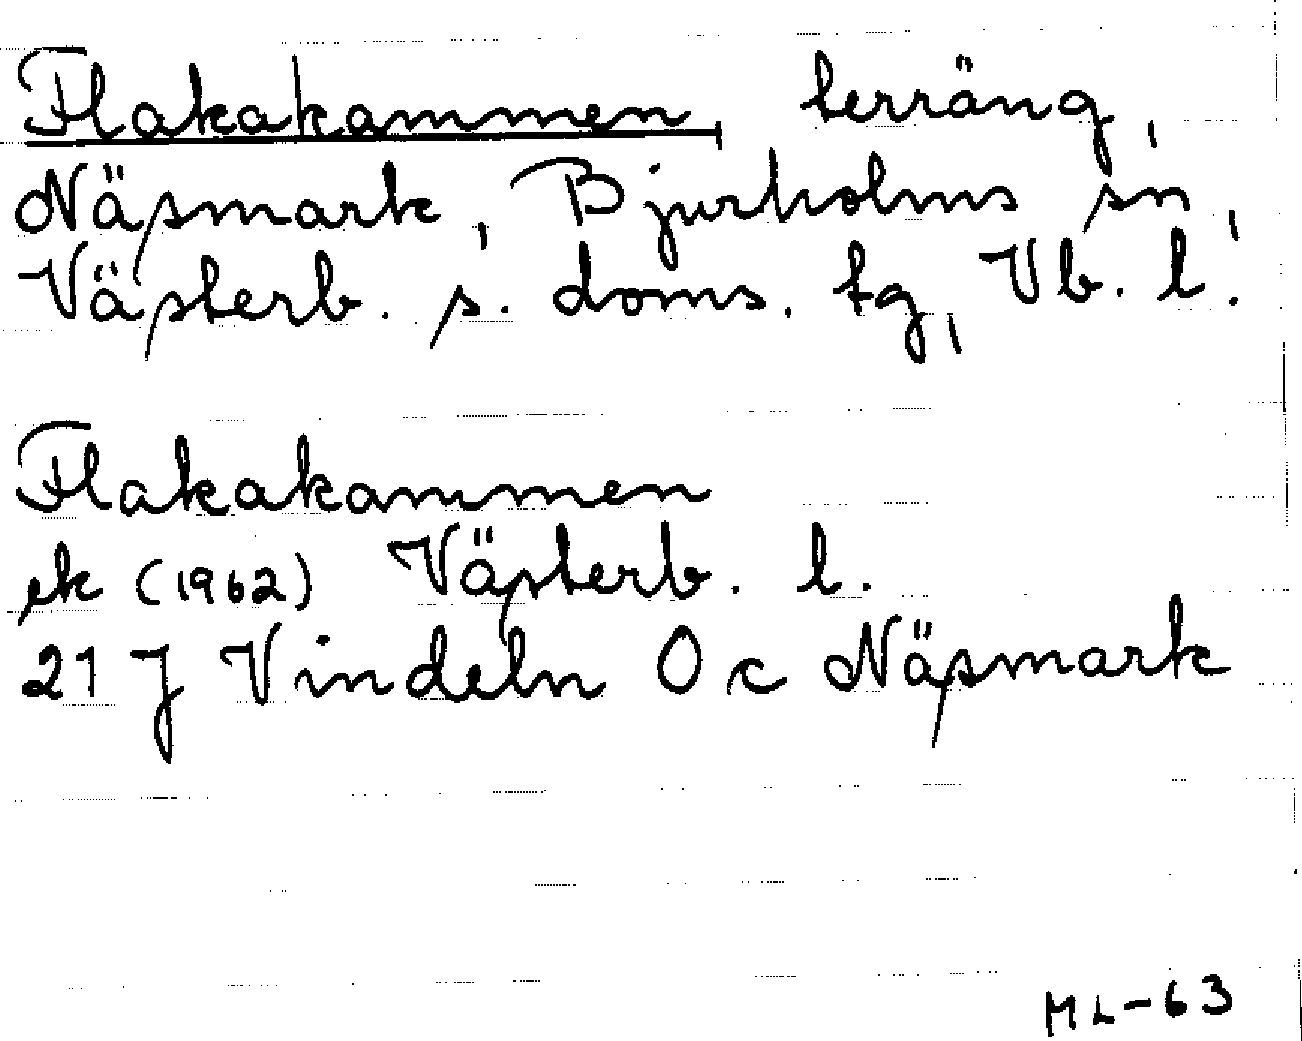 Flakakammen, terräng,
Näsmark, Bjurholms sn,
Västerb. s. doms. tg, Vb. l.
Flakakammen
ek (1962) Västerb. l.
21 J Vindeln 0 c Näsmark
ML-63